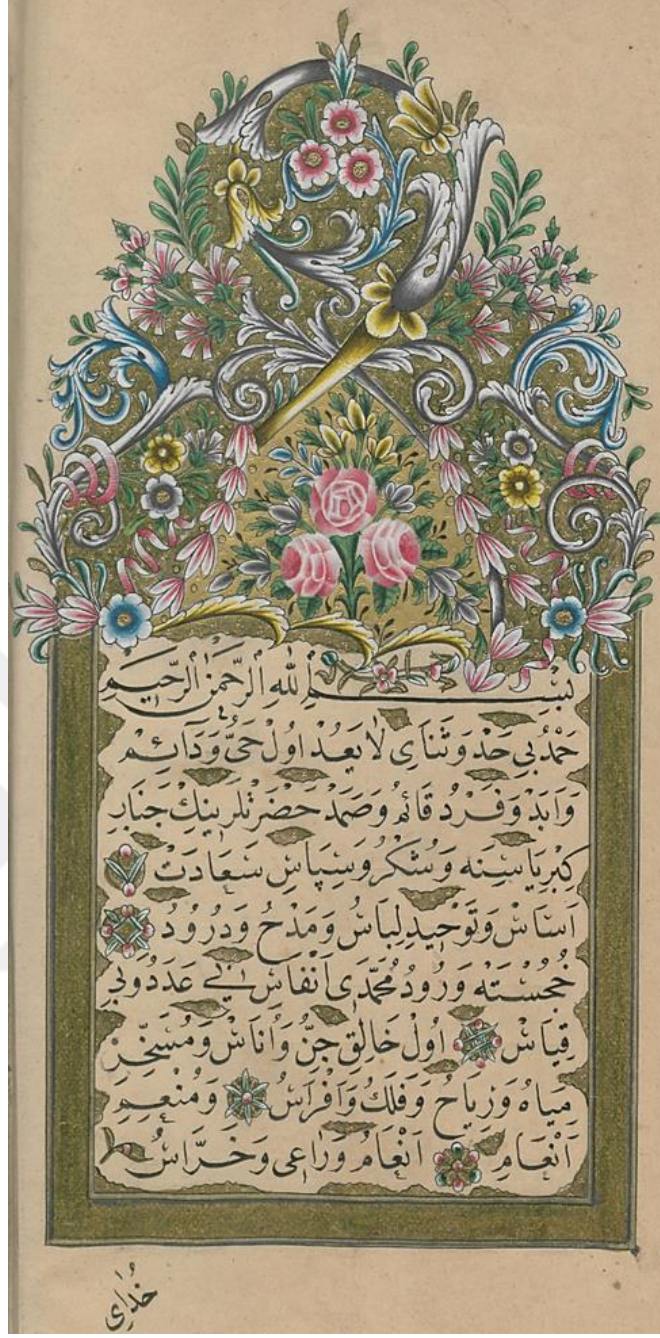 بِسْمِ اللهِ الرَّحْمٰنِ الرَّحِيمِ
حَمْدُ بِي حَدْ وَثَنَايِ لَا يُعَدْ اولْ حَيُّ وَدَائِمْ
وَابَدْ وَفَرْدُ قَائِمْ وَصَمَدْ حَضْرَتْلَرِينِكْ جَنَابِ
كِبْرِيَاسِنَه وَشُكْرُ وَسِپَاسِ سَعَادَتْ
اَسَاسْ وَتَوْحِيدِ لِبَاسْ وَمَدْحُ وَدُرُودُ
خُجُسْتَه وَرُودُ مُحَمَّدَى اَنْفَاسْ بِي عَدَدُ وَبِي
قِيَاسْ اولْ خَالِقِ جِنُّ وَاُنَاسْ وَمُسَخِّرِ
مِيَاهْ وَرِيَاحْ وَفَلَكْ وَاَفْرَاسْ وَمُنْعِمِ
اَنْعَامِ اَنْعَامُ وَرَاعِى وَحَرَّاسْ
خُدَاىِ